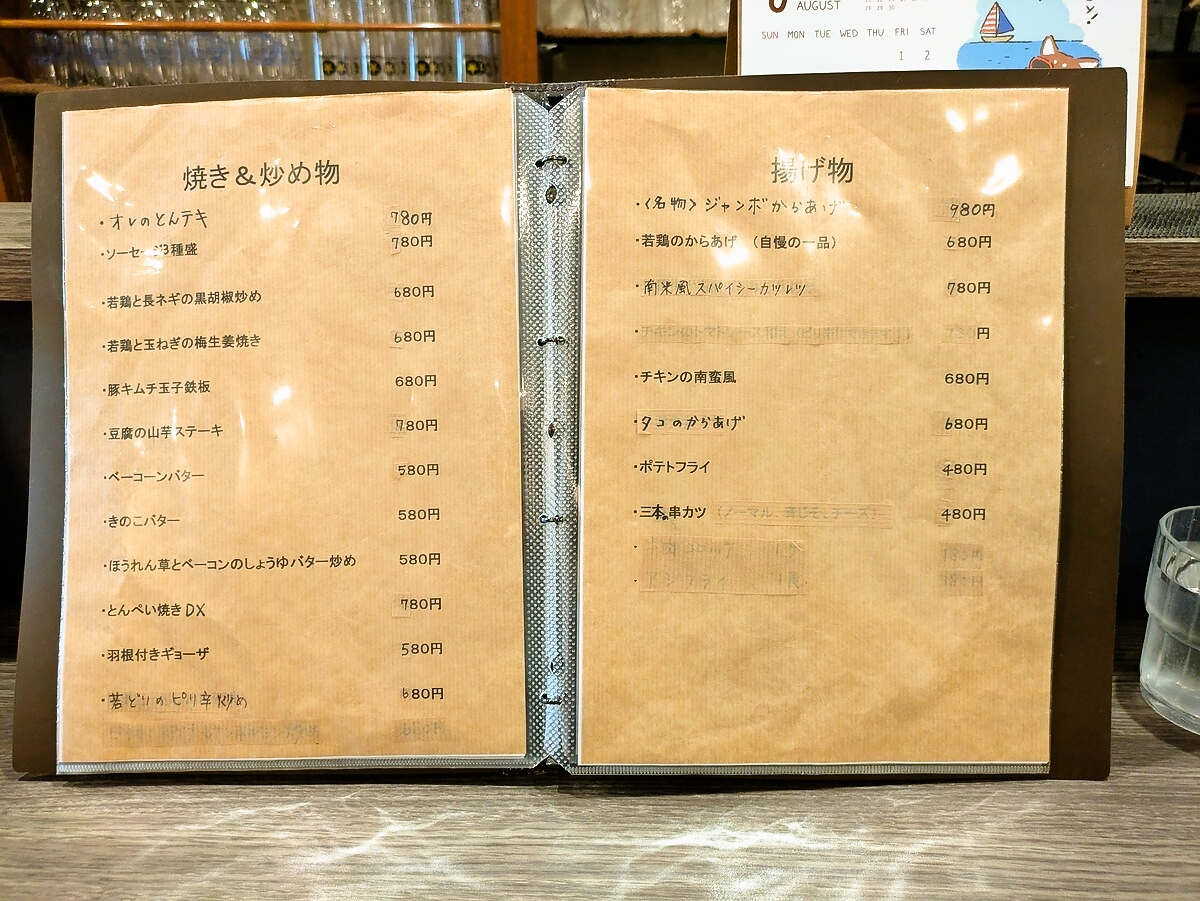 AUGUST
SUN MON TUE WED THU FRI SAT
1 2
焼き＆炒め物
・オレのとんテキ 780円
・ソーセージ3種盛 780円
・若鶏と長ネギの黒胡椒炒め 680円
・若鶏と玉ねぎの梅生姜焼き 680円
・豚キムチ玉子鉄板 680円
・豆腐の山芋ステーキ 780円
・ベーコーンバター 580円
・きのこバター 580円
・ほうれん草とベーコンのしょうゆバター炒め 580円
・とんぺい焼きDX 780円
・羽根付きギョーザ 580円
・若どりのピリ辛炒め 680円
揚げ物
・〈名物〉ジャンボからあげ 980円
・若鶏のからあげ （自慢の一品） 680円
・南米風スパイシーカツレツ 780円
円
・チキンの南蛮風 680円
・タコのからあげ 680円
・ポテトフライ 480円
・三本串カツ （ノーマル、青じそ、チーズ） 480円
・アジフライ 1尾 380円